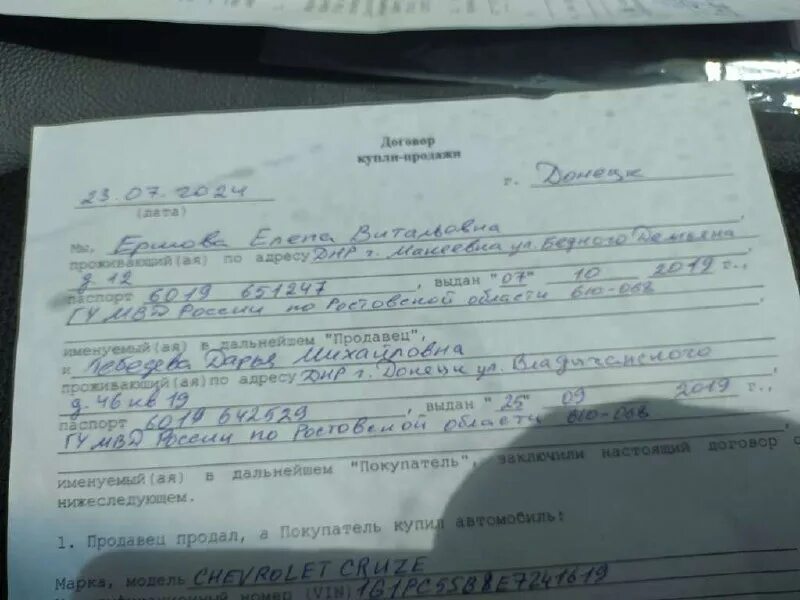 Договор
купли-продажи
23.07.2024 г. Донецк
(дата)
Мы, Ершова Елена Витальевна
проживающий(ая) по адресу ДНР г. Макеевка ул. Бедного Демьяна
д. 12
паспорт 6019 651247, выдан "07" 10 2019 г.,
ГУ МВД России по Ростовской области 610-068
именуемый(ая) в дальнейшем "Продавец",
и Лебедева Дарья Михайловна
проживающий(ая) по адресу ДНР г. Донецк ул.
д. 46 кв 19
паспорт 6019 642529, выдан "25" 09 2019 г.,
ГУ МВД России по Ростовской области 610-068
именуемый(ая) в дальнейшем "Покупатель", заключили настоящий договор о
нижеследующем.
1. Продавец продал, а Покупатель купил автомобиль:
Марка, модель CHEVROLET CRUZE
номер (VIN) 1G1PC5SB8E7241619